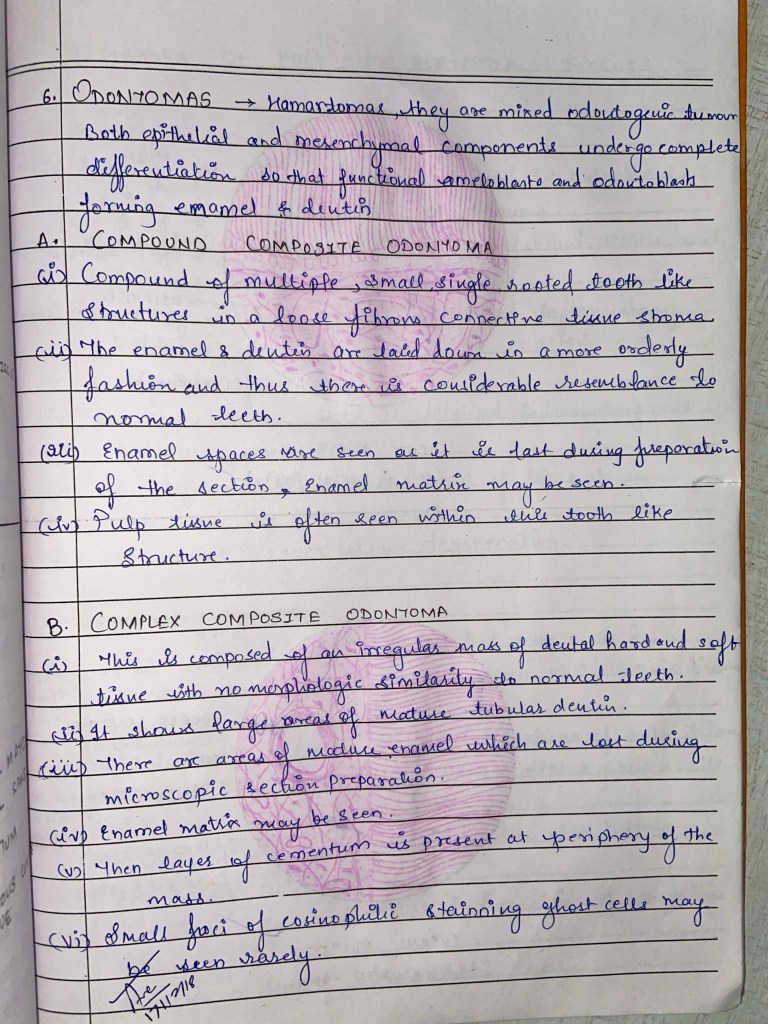 6. ODONTOMAS → Hamartomas, they are mixed odontogenic tumour
Both epithelial and mesenchymal components undergo complete
differentiation so that functional ameloblasts and odontoblasts
forming enamel & dentin
A. COMPOUND COMPOSITE ODONTOMA
(i) Compound of multiple, small, single rooted tooth like
structures in a loose fibrous connective tissue stroma
(ii) The enamel & dentin are laid down in a more orderly
fashion and thus there is considerable resemblance to
normal teeth.
(iii) Enamel spaces are seen as it is lost during preparation
of the section, Enamel matrix may be seen.
(iv) Pulp tissue is often seen within this tooth like
structure.
B. COMPLEX COMPOSITE ODONTOMA
(i) This is composed of an irregular mass of dental hard and soft
tissue with no morphologic similarity to normal teeth.
(ii) It shows large areas of mature tubular dentin.
(iii) There are areas of mature enamel which are lost during
microscopic section preparation.
(iv) Enamel matrix may be seen.
(v) Then layer of cementum is present at periphery of the
mass.
(vi) Small foci of eosinophilic stainning ghost cells may
be seen rarely.